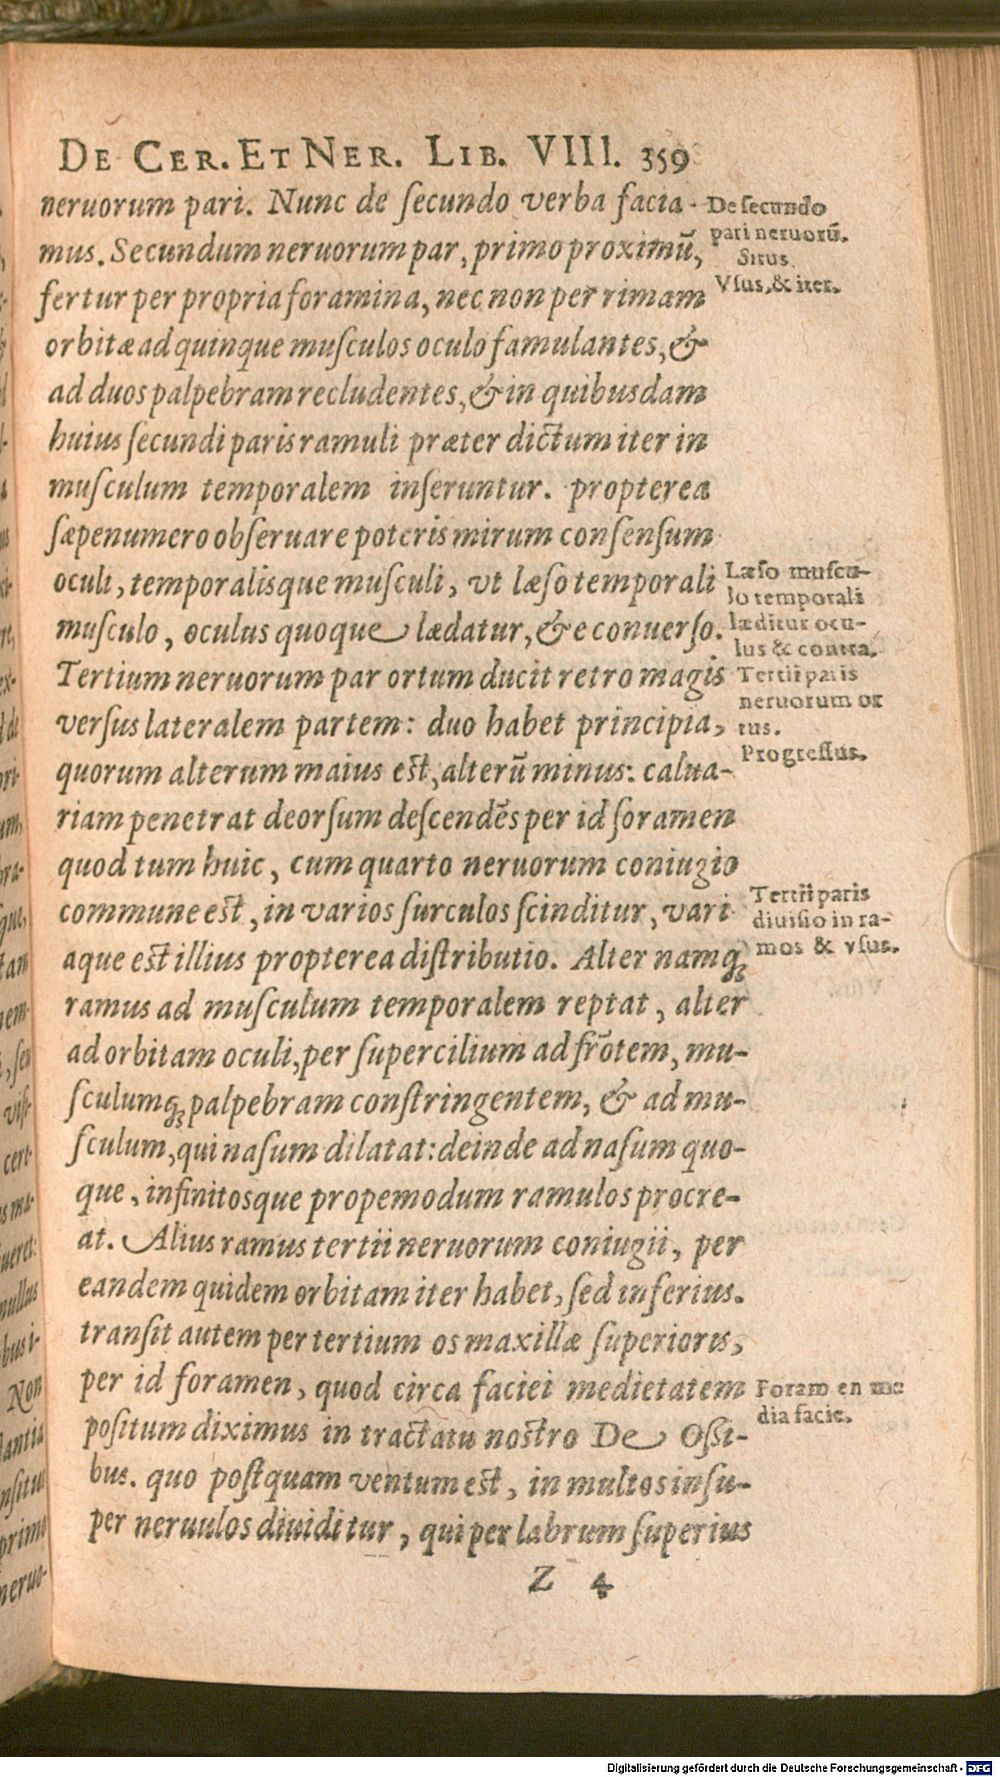 DE CER. ET NER. LIB. VIII. 359
neruorum pari. Nunc de ſecundo verba facia-
mus. Secundum neruorum par, primo proximũ,
fertur per propria foramina, nec non per rimam
orbitæ ad quinque muſculos oculo famulantes, &
ad duos palpebram recludentes, & in quibusdam
huius ſecundi paris ramuli præter dictum iter in
muſculum temporalem inſeruntur. propterea
ſæpenumero obſeruare poteris mirum conſenſum
oculi, temporalisque muſculi, vt læſo temporali
muſculo, oculus quoque lædatur, & e conuerſo.
Tertium neruorum par ortum ducit retro magis
verſus lateralem partem: duo habet principia,
quorum alterum maius est, alterũ minus: calua-
riam penetrat deorſum deſcendẽs per id foramen
quod tum huic, cum quarto neruorum coniugio
commune est, in varios ſurculos ſcinditur, vari
aque est illius propterea diſtributio. Alter namq́ꝫ
ramus ad muſculum temporalem reptat, alter
ad orbitam oculi, per ſupercilium ad frõtem, mu-
ſculumq́ꝫ palpebram conſtringentem, & ad mu-
ſculum, qui naſum dilatat: deinde ad naſum quo-
que, infinitosque propemodum ramulos procre-
at. Alius ramus tertii neruorum coniugii, per
eandem quidem orbitam iter habet, ſed inferius.
tranſit autem per tertium os maxillæ ſuperioris,
per id foramen, quod circa faciei medietatem
poſitum diximus in tractatu nostro De Oſſi-
bus. quo poſtquam ventum est, in multos inſu-
per neruulos diuiditur, qui per labrum ſuperius
Z 4
De ſecundo
pari neruorũ.
Situs.
Vſus, & iter.
Læſo muſcu-
lo temporali
læditur ocu-
lus & contra.
Tertii paris
neruorum or
tus.
Progreſſus.
Tertii paris
diuiſio in ra-
mos & vſus.
Foram en me
dia facie.
Digitalisierung gefördert durch die Deutsche Forschungsgemeinschaft - DFG